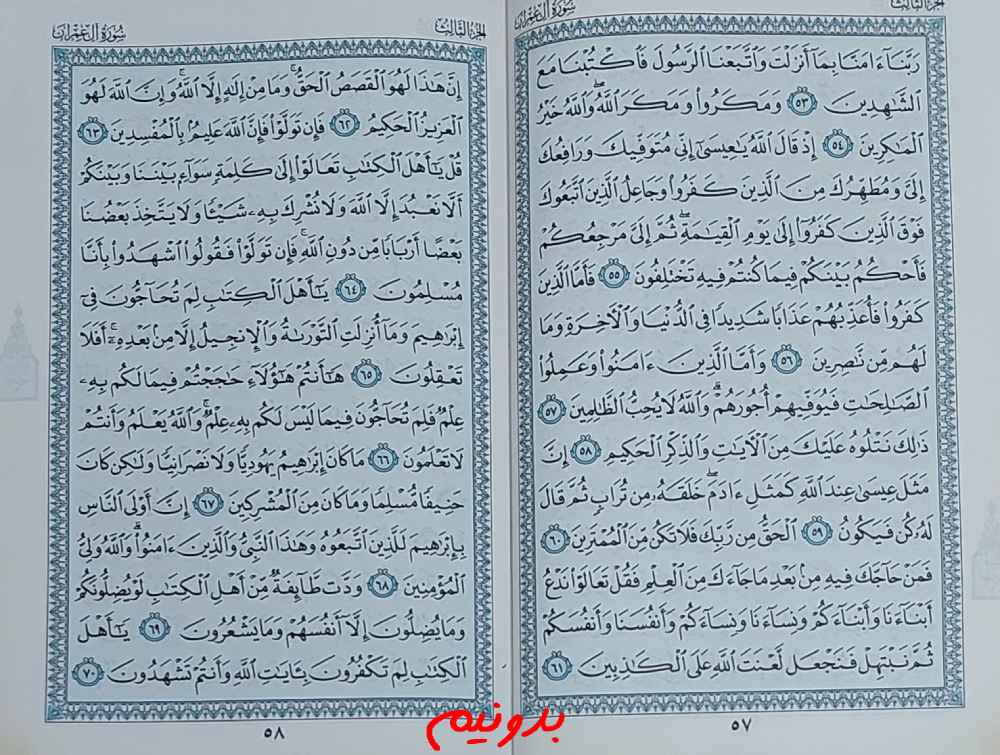 الجزء الثالث
سورة آل عمران
رَبَّنَآ ءَامَنَّا بِمَآ أَنزَلْتَ وَٱتَّبَعْنَا ٱلرَّسُولَ فَٱكْتُبْنَا مَعَ
ٱلشَّٰهِدِينَ ٥٣ وَمَكَرُوا۟ وَمَكَرَ ٱللَّهُ ۖ وَٱللَّهُ خَيْرُ
ٱلْمَٰكِرِينَ ٥٤ إِذْ قَالَ ٱللَّهُ يَٰعِيسَىٰٓ إِنِّى مُتَوَفِّيكَ وَرَافِعُكَ
إِلَىَّ وَمُطَهِّرُكَ مِنَ ٱلَّذِينَ كَفَرُوا۟ وَجَاعِلُ ٱلَّذِينَ ٱتَّبَعُوكَ
فَوْقَ ٱلَّذِينَ كَفَرُوٓا۟ إِلَىٰ يَوْمِ ٱلْقِيَٰمَةِ ۖ ثُمَّ إِلَىَّ مَرْجِعُكُمْ
فَأَحْكُمُ بَيْنَكُمْ فِيمَا كُنتُمْ فِيهِ تَخْتَلِفُونَ ٥٥ فَأَمَّا ٱلَّذِينَ
كَفَرُوا۟ فَأُعَذِّبُهُمْ عَذَابًا شَدِيدًا فِى ٱلدُّنْيَا وَٱلْءَاخِرَةِ وَمَا
لَهُم مِّن نَّٰصِرِينَ ٥٦ وَأَمَّا ٱلَّذِينَ ءَامَنُوا۟ وَعَمِلُوا۟
ٱلصَّٰلِحَٰتِ فَيُوَفِّيهِمْ أُجُورَهُمْ ۗ وَٱللَّهُ لَا يُحِبُّ ٱلظَّٰلِمِينَ ٥٧
ذَٰلِكَ نَتْلُوهُ عَلَيْكَ مِنَ ٱلْءَايَٰتِ وَٱلذِّكْرِ ٱلْحَكِيمِ ٥٨ إِنَّ
مَثَلَ عِيسَىٰ عِندَ ٱللَّهِ كَمَثَلِ ءَادَمَ ۖ خَلَقَهُۥ مِن تُرَابٍ ثُمَّ قَالَ
لَهُۥ كُن فَيَكُونُ ٥٩ ٱلْحَقُّ مِن رَّبِّكَ فَلَا تَكُن مِّنَ ٱلْمُمْتَرِينَ ٦٠
فَمَنْ حَآجَّكَ فِيهِ مِنۢ بَعْدِ مَا جَآءَكَ مِنَ ٱلْعِلْمِ فَقُلْ تَعَالَوْا۟ نَدْعُ
أَبْنَآءَنَا وَأَبْنَآءَكُمْ وَنِسَآءَنَا وَنِسَآءَكُمْ وَأَنفُسَنَا وَأَنفُسَكُمْ
ثُمَّ نَبْتَهِلْ فَنَجْعَل لَّعْنَتَ ٱللَّهِ عَلَى ٱلْكَٰذِبِينَ ٦١
٥٧
الجزء الثالث
سورة آل عمران
إِنَّ هَٰذَا لَهُوَ ٱلْقَصَصُ ٱلْحَقُّ ۚ وَمَا مِنْ إِلَٰهٍ إِلَّا ٱللَّهُ ۚ وَإِنَّ ٱللَّهَ لَهُوَ
ٱلْعَزِيزُ ٱلْحَكِيمُ ٦٢ فَإِن تَوَلَّوْا۟ فَإِنَّ ٱللَّهَ عَلِيمٌۢ بِٱلْمُفْسِدِينَ ٦٣
قُلْ يَٰٓأَهْلَ ٱلْكِتَٰبِ تَعَالَوْا۟ إِلَىٰ كَلِمَةٍ سَوَآءٍۭ بَيْنَنَا وَبَيْنَكُمْ
أَلَّا نَعْبُدَ إِلَّا ٱللَّهَ وَلَا نُشْرِكَ بِهِۦ شَيْـًٔا وَلَا يَتَّخِذَ بَعْضُنَا
بَعْضًا أَرْبَابًا مِّن دُونِ ٱللَّهِ ۚ فَإِن تَوَلَّوْا۟ فَقُولُوا۟ ٱشْهَدُوا۟ بِأَنَّا
مُسْلِمُونَ ٦٤ يَٰٓأَهْلَ ٱلْكِتَٰبِ لِمَ تُحَآجُّونَ فِىٓ
إِبْرَٰهِيمَ وَمَآ أُنزِلَتِ ٱلتَّوْرَىٰةُ وَٱلْإِنجِيلُ إِلَّا مِنۢ بَعْدِهِۦٓ ۚ أَفَلَا
تَعْقِلُونَ ٦٥ هَٰٓأَنتُمْ هَٰٓؤُلَآءِ حَٰجَجْتُمْ فِيمَا لَكُم بِهِۦ
عِلْمٌ فَلِمَ تُحَآجُّونَ فِيمَا لَيْسَ لَكُم بِهِۦ عِلْمٌ ۚ وَٱللَّهُ يَعْلَمُ وَأَنتُمْ
لَا تَعْلَمُونَ ٦٦ مَا كَانَ إِبْرَٰهِيمُ يَهُودِيًّا وَلَا نَصْرَانِيًّا وَلَٰكِن كَانَ
حَنِيفًا مُّسْلِمًا وَمَا كَانَ مِنَ ٱلْمُشْرِكِينَ ٦٧ إِنَّ أَوْلَى ٱلنَّاسِ
بِإِبْرَٰهِيمَ لَلَّذِينَ ٱتَّبَعُوهُ وَهَٰذَا ٱلنَّبِىُّ وَٱلَّذِينَ ءَامَنُوا۟ ۗ وَٱللَّهُ وَلِىُّ
ٱلْمُؤْمِنِينَ ٦٨ وَدَّت طَّآئِفَةٌ مِّنْ أَهْلِ ٱلْكِتَٰبِ لَوْ يُضِلُّونَكُمْ
وَمَا يُضِلُّونَ إِلَّآ أَنفُسَهُمْ وَمَا يَشْعُرُونَ ٦٩ يَٰٓأَهْلَ
ٱلْكِتَٰبِ لِمَ تَكْفُرُونَ بِـَٔايَٰتِ ٱللَّهِ وَأَنتُمْ تَشْهَدُونَ ٧٠
٥٨
بدونیم